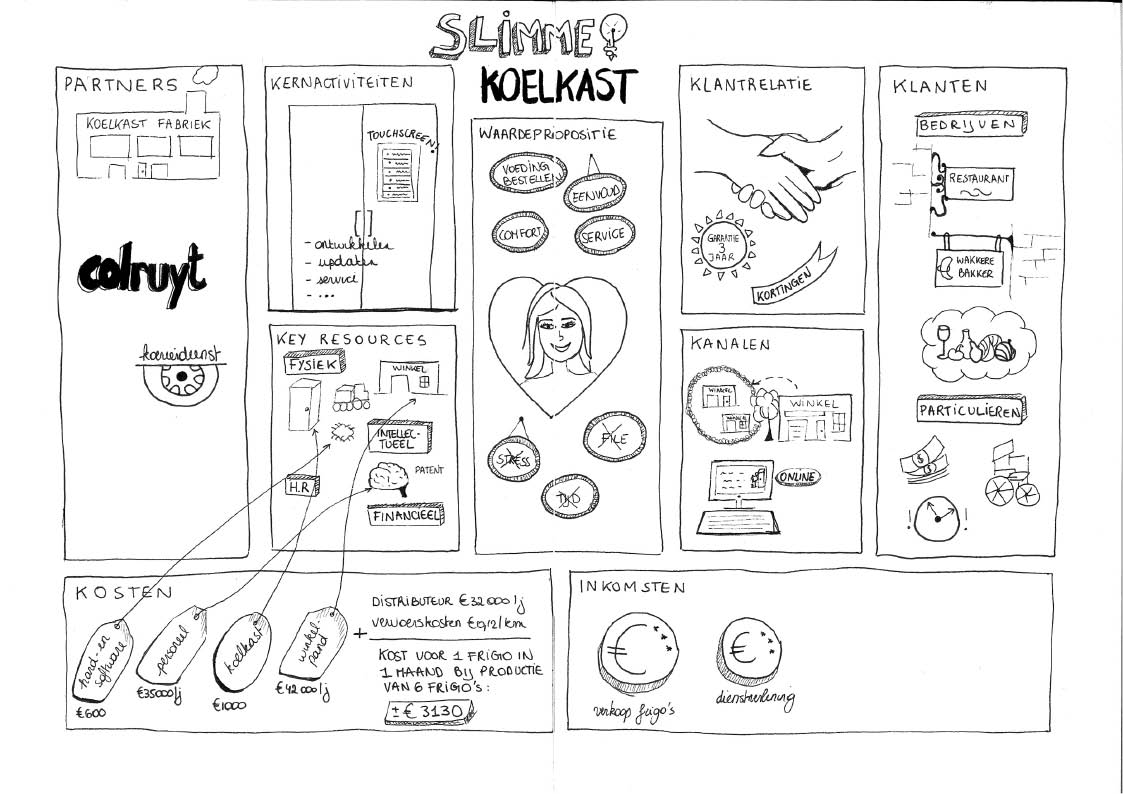 SLIMME
KOELKAST
PARTNERS
KOELKAST FABRIEK
colruyt
koerierdienst
KERNACTIVITEITEN
TOUCHSCREEN!
- ontwikkelen
- updaten
- service
- ...
KEY RESOURCES
FYSIEK
WINKEL
INTELLEC-
TUEEL
H.R
PATENT
FINANCIEEL
WAARDEPROPOSITIE
VOEDING
BESTELLEN
EENVOUD
COMFORT
SERVICE
STRESS
FILE
TIJD
KLANTRELATIE
GARANTIE
3
JAAR
KORTINGEN
KANALEN
WINKEL
WINKEL
WINKEL
ONLINE
KLANTEN
BEDRIJVEN
RESTAURANT
WAKKERE
BAKKER
PARTICULIEREN
! !
KOSTEN
hard- en
software
€600
personeel
€35000/j
koelkast
€1000
winkel-
pand
€42000/j
+
DISTRIBUTEUR €32000/j
vervoerskosten €0,12/km
KOST VOOR 1 FRIGO IN
1 MAAND BIJ PRODUCTIE
VAN 6 FRIGO'S:
± € 3130
INKOMSTEN
€
verkoop frigo's
€
dienstverlening